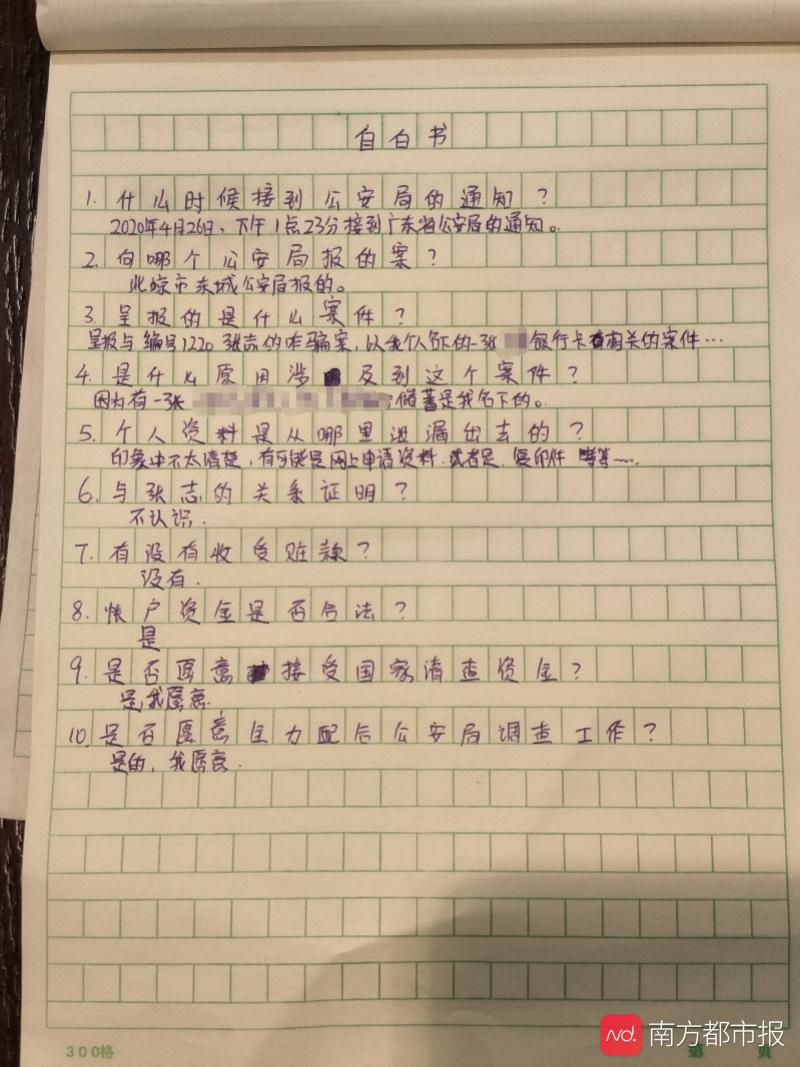 自白书
1. 什么时候接到公安局的通知?
2020年4月26日,下午1点23分接到广东省公安局的通知。
2. 向哪个公安局报的案?
北京市东城公安局报的。
3. 呈报的是什么案件?
呈报与编号1220张志的诈骗案,以我个人名下的一张 银行卡有相关的案件…
4. 是什么原因涉 及到这个案件?
因为有一张 储蓄是我名下的。
5. 个人资料是从哪里泄漏出去的?
印象中不太清楚,有可能是网上申请资料.或者是.复印件 等等….
6. 与张志的关系证明?
不认识.
7. 有没有收受赃款?
没有.
8. 帐户资金是否合法?
是
9. 是否愿意 接受国家清查资金?
是,我愿意.
10. 是否愿意全力配合公安局调查工作?
是的,我愿意.
300格
第 页
nd. 南方都市报